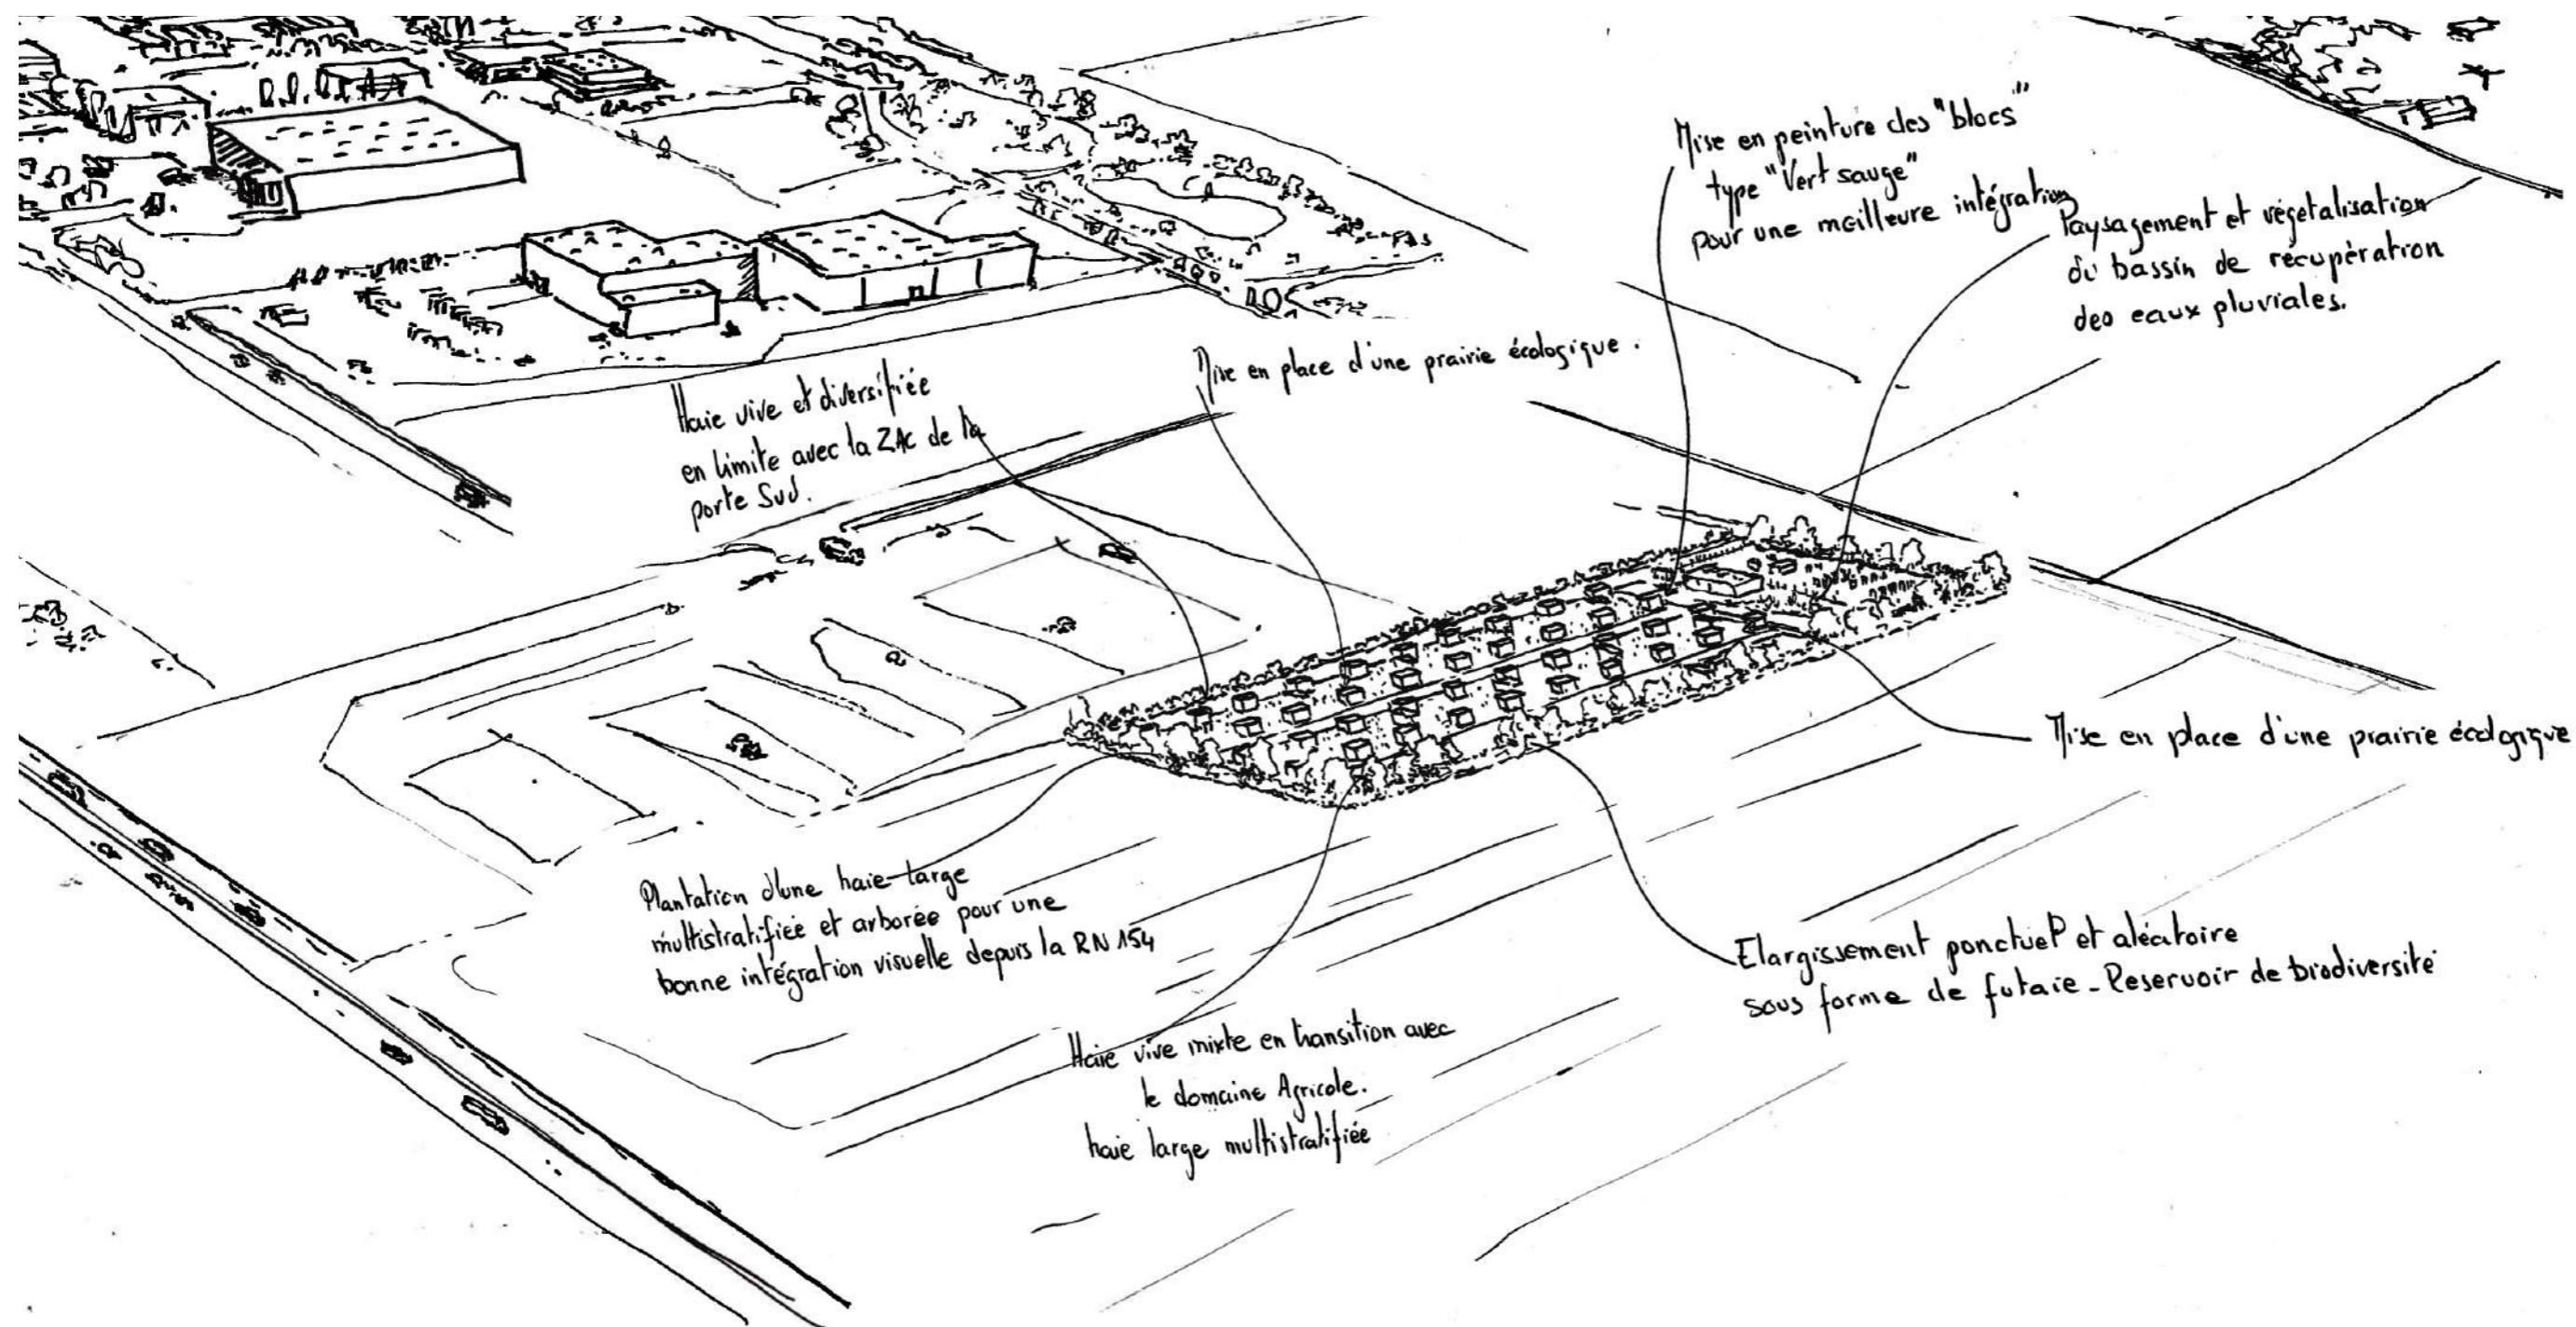 Mise en peinture des "blocs"
type "Vert sauge"
pour une meilleure intégration
Paysagement et végétalisation
du bassin de récupération
des eaux pluviales.
Mise en place d'une prairie écologique.
Haie vive et diversifiée
en limite avec la ZAC de la
porte Sud.
Mise en place d'une prairie écologique
Plantation d'une haie large
multistratifiée et arborée pour une
bonne intégration visuelle depuis la RN 154
Elargissement ponctuel et aléatoire
sous forme de futaie - Reservoir de biodiversité
Haie vive mixte en transition avec
le domaine Agricole.
haie large multistratifiée